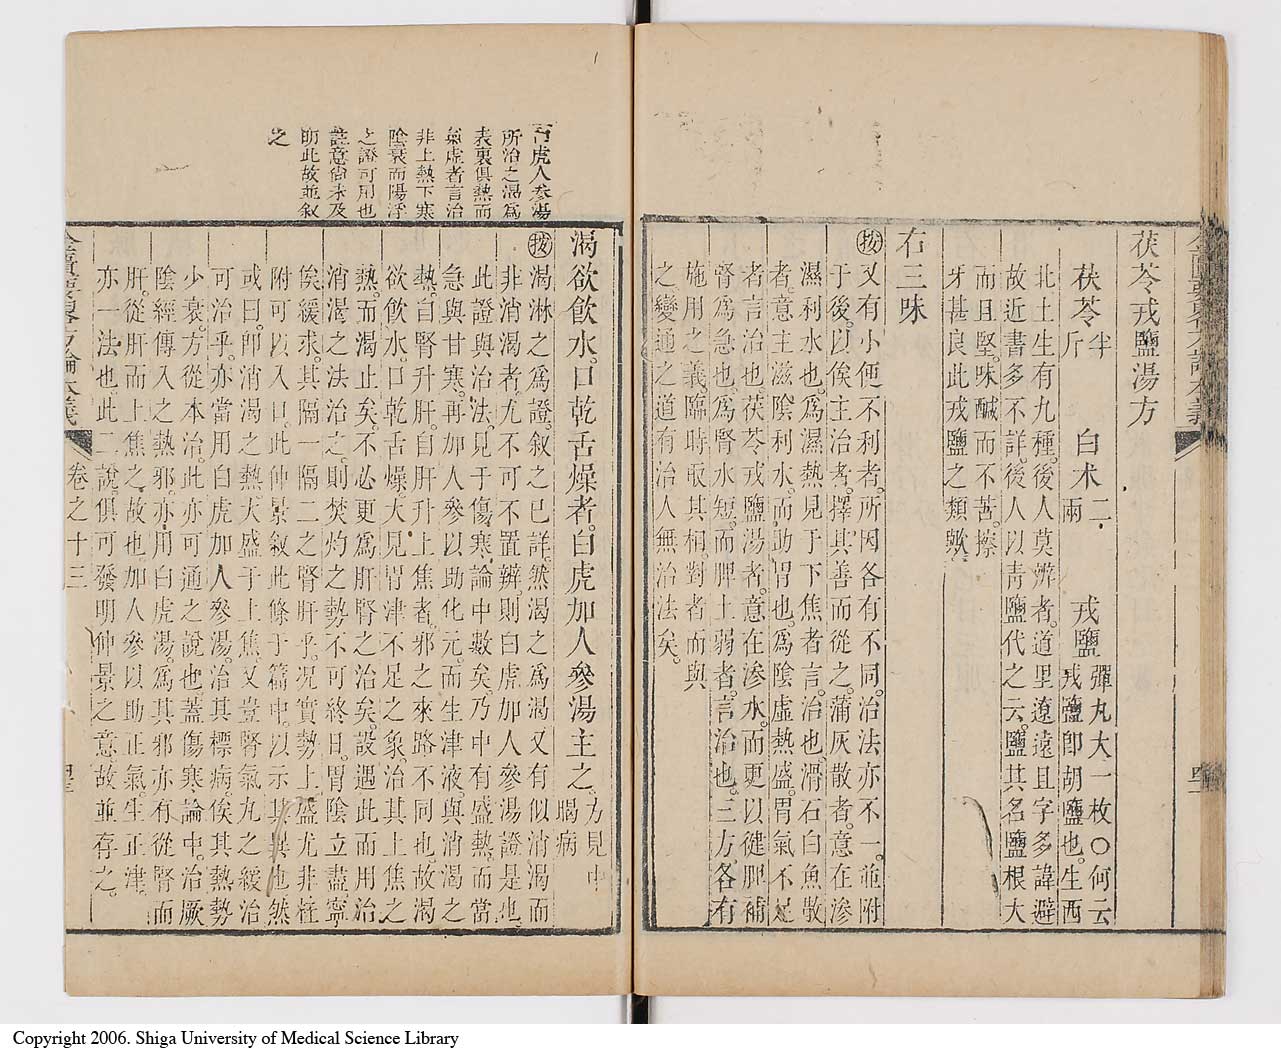 茯苓戎鹽湯方
茯苓半斤　白朮二兩　戎鹽彈丸大一枚〇何云戎鹽卽胡鹽也。生西
北土生有九種。後人莫辨者。道里遼遠且字多諱避
故近書多不詳。後人以靑鹽代之云。鹽其名鹽根大
而且堅。味鹹而不苦。擦
牙甚良此戎鹽之類歟
右三味
按又有小便不利者。所因各有不同。治法亦不一。並附
于後。以俟主治者。擇其善而從之。蒲灰散者。意在滲
濕利水也。爲濕熱見于下焦者言。治也。滑石白魚散
者。意主滋陰利水。而助胃也。爲陰虛熱盛。胃氣不足
者言治也。茯苓戎鹽湯者。意在滲水。而更以健脾補
腎爲急也。爲腎水短。而脾土弱者。言治也。三方。各有
施用之義。臨時取其相對者而與
之。變通之道有治人無治法矣。
白虎人參湯
所治之渴爲
表裏俱熱而
氣虛者言治
非上熱下寒
陰衰而陽浮
之證可用也
註意尙未及
明此故並叙
之
渴欲飮水。口乾舌燥者。白虎加人參湯主之。方見中暍病
按渴淋之爲證。叙之已詳。然渴之爲渴又有似消渴而
非消渴者。尤不可不置辨。則白虎加人參湯證是也
此證與治法。見于傷寒論中數矣。乃中有盛熱。而當
急與甘寒。再加人參以助化元。而生津液。與消渴之
熱。自腎升肝。自肝升上焦者。邪之來路不同也。故渴
欲飮水。口乾舌燥。大見胃津不足之象。治其上焦之
熱。而渴止矣。不必更爲肝腎之治矣。設遇此而用治
消渴之法治之。則焚灼之勢不可終日。胃陰立盡寧
俟緩求。其隔一隔二之腎肝乎。况實勢上盛尤非桂
附可以入口。此仲景叙此條于篇中。以示其異也然
或曰。卽消渴之熱。大盛于上焦。又豈腎氣丸之緩治
可治乎。亦當用白虎加人參湯。治其標病。俟其熱勢
少衰。方從本治。此亦可通之說也。蓋傷寒論中。治厥
陰經傳入之熱邪。亦用白虎湯。爲其邪亦有從腎而
肝。從肝而上焦之。故也。加人參以助正氣。生正津。
亦一法也。此二說。俱可發明仲景之意。故並存之。
金匱要畧方論本義　卷之十三